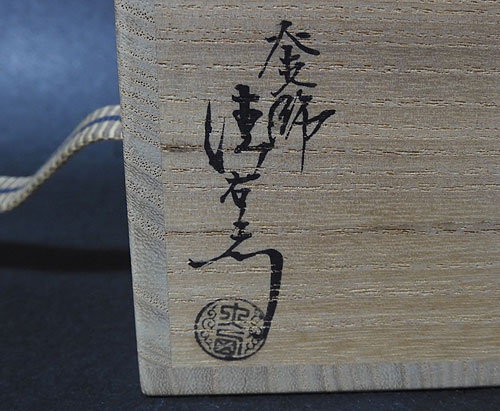 釜師
清右衛門